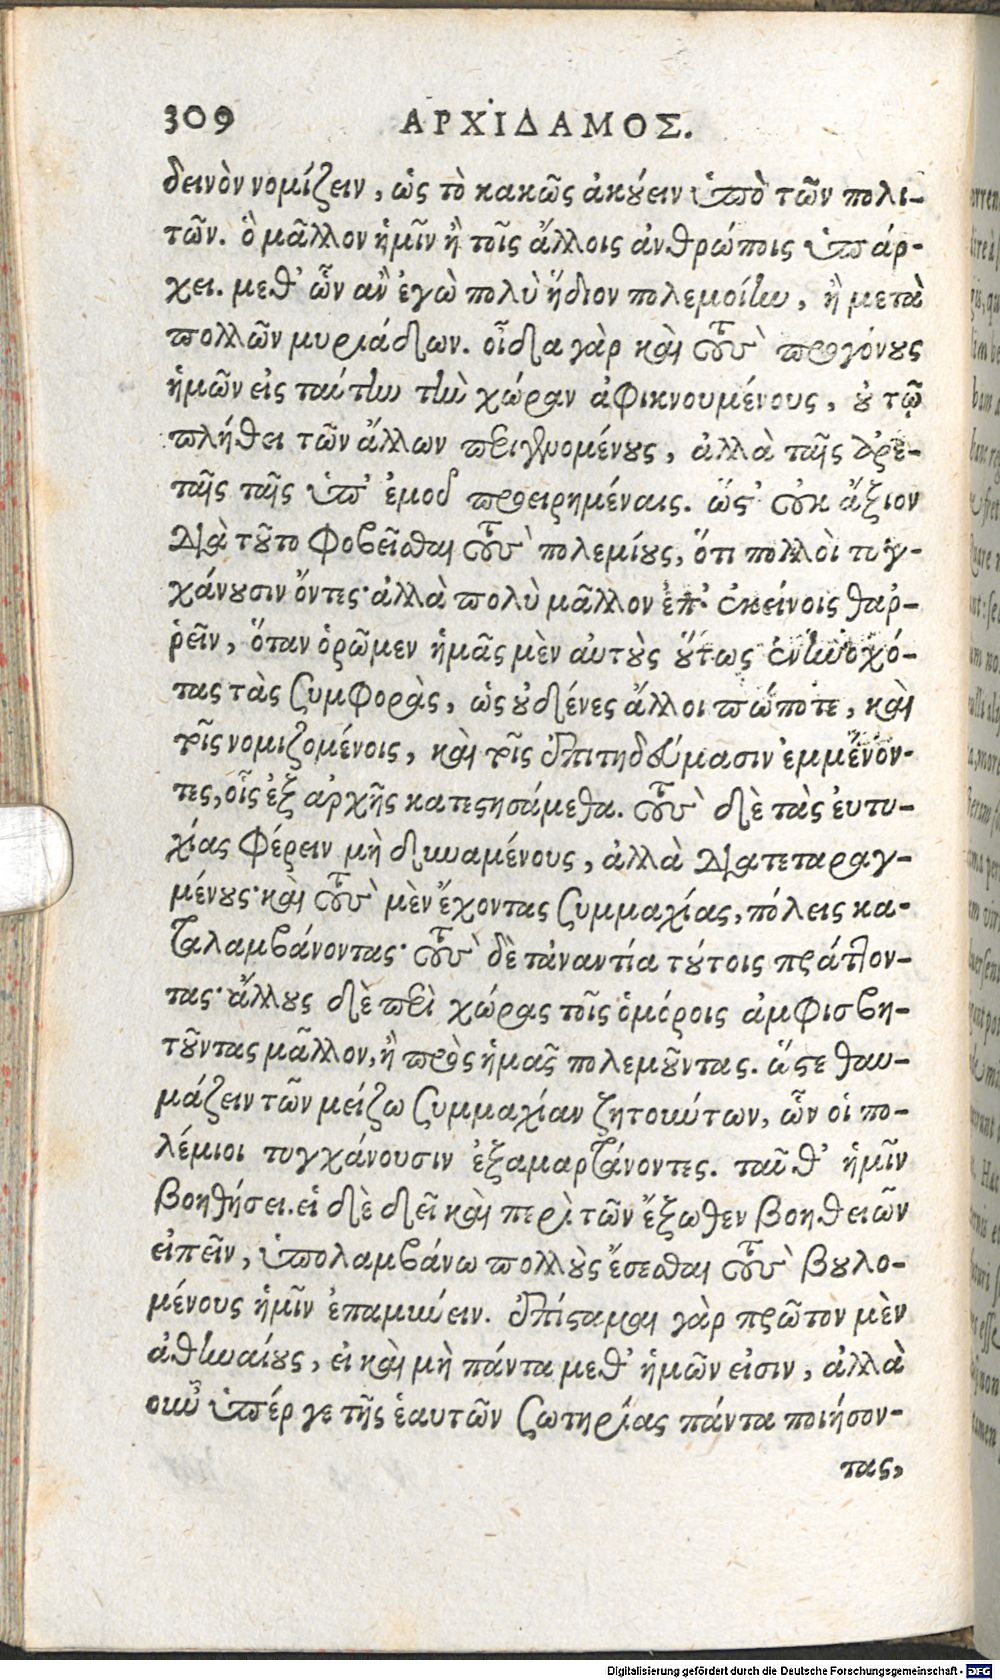 309 ΑΡΧΙΔΑΜΟΣ.
δεινὸν νομίζειν, ὡς τὸ κακῶς ἀκούειν ὑπὸ τῶν πολι-
τῶν. ὃ μᾶλλον ἡμῖν ἢ τοῖς ἄλλοις ἀνθρώποις ὑπάρ-
χει. μεθ' ὧν ἂν ἐγὼ πολὺ ἥδιον πολεμοίην, ἢ μετὰ
πολλῶν μυριάδων. οἶδα γὰρ καὶ τοὺς προγόνους
ἡμῶν εἰς ταύτην τὴν χώραν ἀφικνουμένους, οὐ τῷ
πλήθει τῶν ἄλλων περιγενομένους, ἀλλὰ ταῖς ἀρε-
ταῖς ταῖς ὑπ' ἐμοῦ προειρημέναις. ὥστ' οὐκ ἄξιον
διὰ τοῦτο φοβεῖσθαι τοὺς πολεμίους, ὅτι πολλοὶ τυγ-
χάνουσιν ὄντες· ἀλλὰ πολὺ μᾶλλον ἐπ' ἐκείνοις θαρ-
ρεῖν, ὅταν ὁρῶμεν ἡμᾶς μὲν αὐτοὺς οὕτως ἐνηνοχό-
τας τὰς συμφορὰς, ὡς οὐδένες ἄλλοι πώποτε, καὶ
τοῖς νομιζομένοις, καὶ τοῖς ἐπιτηδεύμασιν ἐμμένον-
τες, οἷς ἐξ ἀρχῆς κατεστησάμεθα. τοὺς δὲ τὰς ἐυτυ-
χίας φέρειν μὴ δυναμένους, ἀλλὰ διατεταραγ-
μένους· καὶ τοὺς μὲν ἔχοντας συμμαχίας, πόλεις κα-
ταλαμβάνοντας· τοὺς δὲ τἀναντία τούτοις πράττον-
τας· ἄλλους δὲ περὶ χώρας τοῖς ὁμόροις ἀμφισβη-
τοῦντας μᾶλλον, ἢ πρὸς ἡμᾶς πολεμοῦντας. ὥστε θαυ-
μάζειν τῶν μείζω συμμαχίαν ζητούντων, ὧν οἱ πο-
λέμιοι τυγχάνουσιν ἐξαμαρτάνοντες. ταῦθ' ἡμῖν
βοηθήσει. εἰ δὲ δεῖ καὶ περὶ τῶν ἔξωθεν βοηθειῶν
εἰπεῖν, ὑπολαμβάνω πολλοὺς ἔσεσθαι τοὺς βουλο-
μένους ἡμῖν ἐπαμύνειν. ἐπίσταμαι γὰρ πρῶτον μὲν
ἀθηναίους, εἰ καὶ μὴ πάντα μεθ' ἡμῶν εἰσιν, ἀλλὰ
οὖν ὑπέρ γε τῆς ἑαυτῶν σωτηρίας πάντα ποιήσον-
τας,
Digitalisierung gefördert durch die Deutsche Forschungsgemeinschaft - DFG